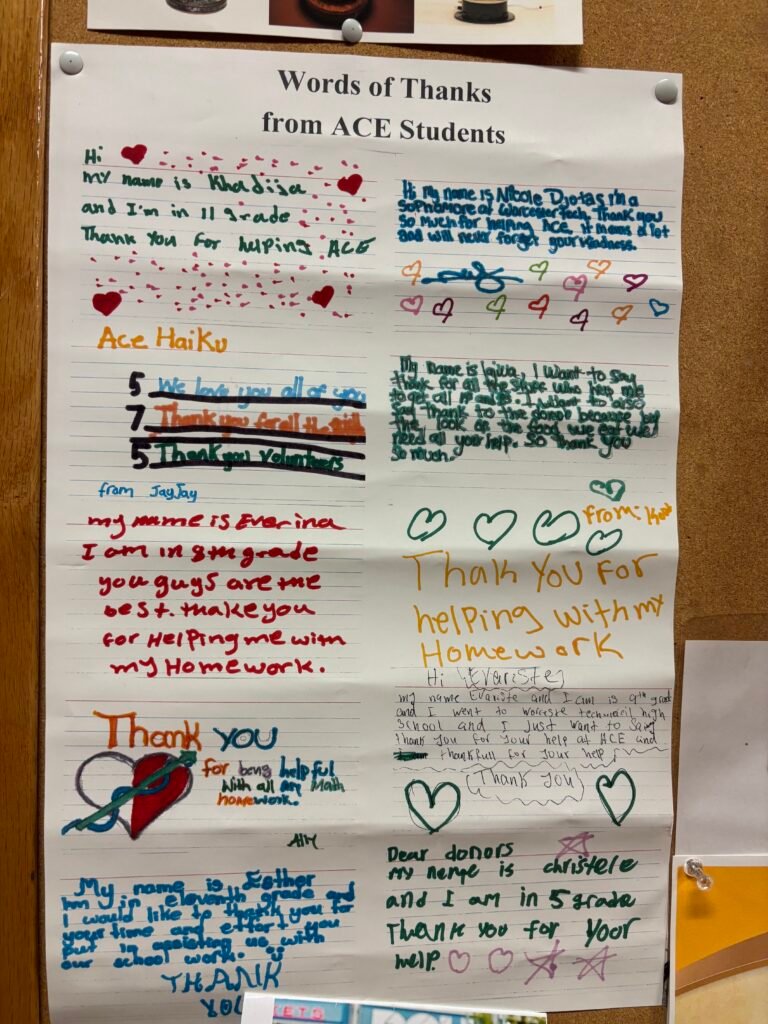 Words of Thanks
from ACE Students
Hi
my name is Khadija
and I'm in 11 grade
Thank You For helping ACE
Ace Haiku
5 We love you all of you
7 Thank you for all the
5 Thank you volunteers
from JayJay
my name is Everina
I am in 8th grade
you guys are the
best. thake you
for Helping me with
my Homework.
Thank you
for being helpful
With all my Math
homework.
My name is Esther
I'm in eleventh grade and
I would like to thank you for
your time and effort you
put in assisting us with
our school work.
THANK
YOU
Hi my name is Nicole I'm a
sophomore at Worcester Tech, Thank you
so much for helping ACE, it means a lot
and will never forget your kindness.
My name is I want to say
thank for all the who help me
to get all I want to also
say thank to the donor because by
the look or the food we eat we
need all your help. So thank you
so much.
from:
Thak You For
helping with my
Homework
Hi Evariste
my name Evariste and I am is 9th grad
and I went to worcste techmacil high
School and I just want to Say
thank you for your help at ACE and
thankfull for your help
Thank You
Dear donors
my neme is christele
and I am in 5 grade
Thank you for your
help